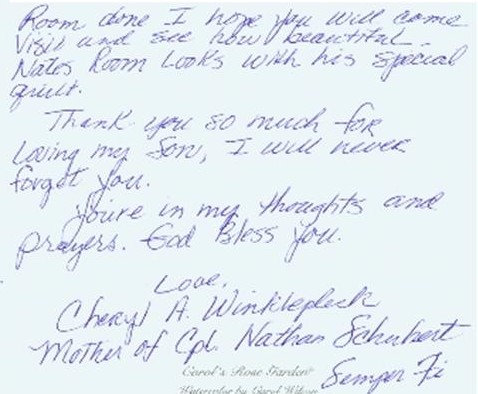 Room done I hope you will come
visit and see how beautiful
Nates Room Looks with his special
quilt.
Thank you so much for
Loving my Son, I will never
forget you.
You're in my thoughts and
prayers. God Bless You.
Love,
Cheryl A. Winklepleck
Mother of Cpl. Nathan Schubert
Carol's Rose Garden®
Semper Fi
Watercolor by Carol Wilson